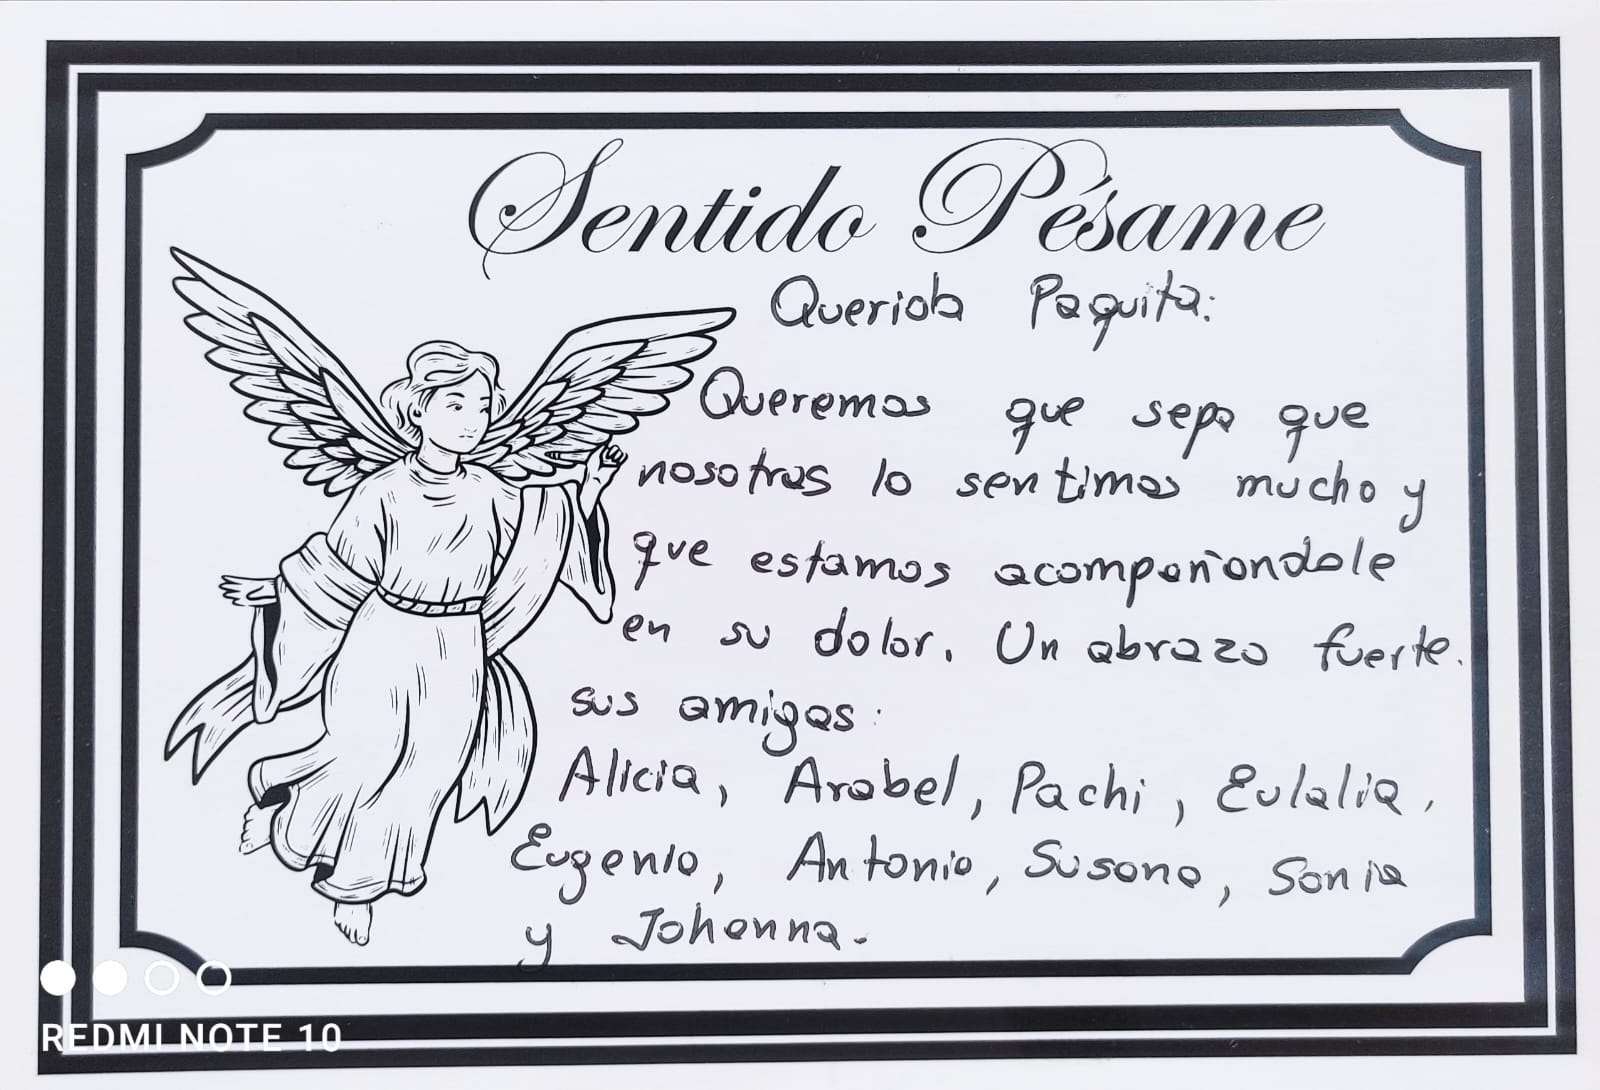 Sentido Pésame
Querida Paquita:
Queremos que sepa que
nosotros lo sentimos mucho y
que estamos acompañandole
en su dolor. Un abrazo fuerte.
sus amigas:
Alicia, Arabel, Pachi, Eulalia,
Eugenio, Antonio, Susana, Sonia
y Johanna.
REDMI NOTE 10